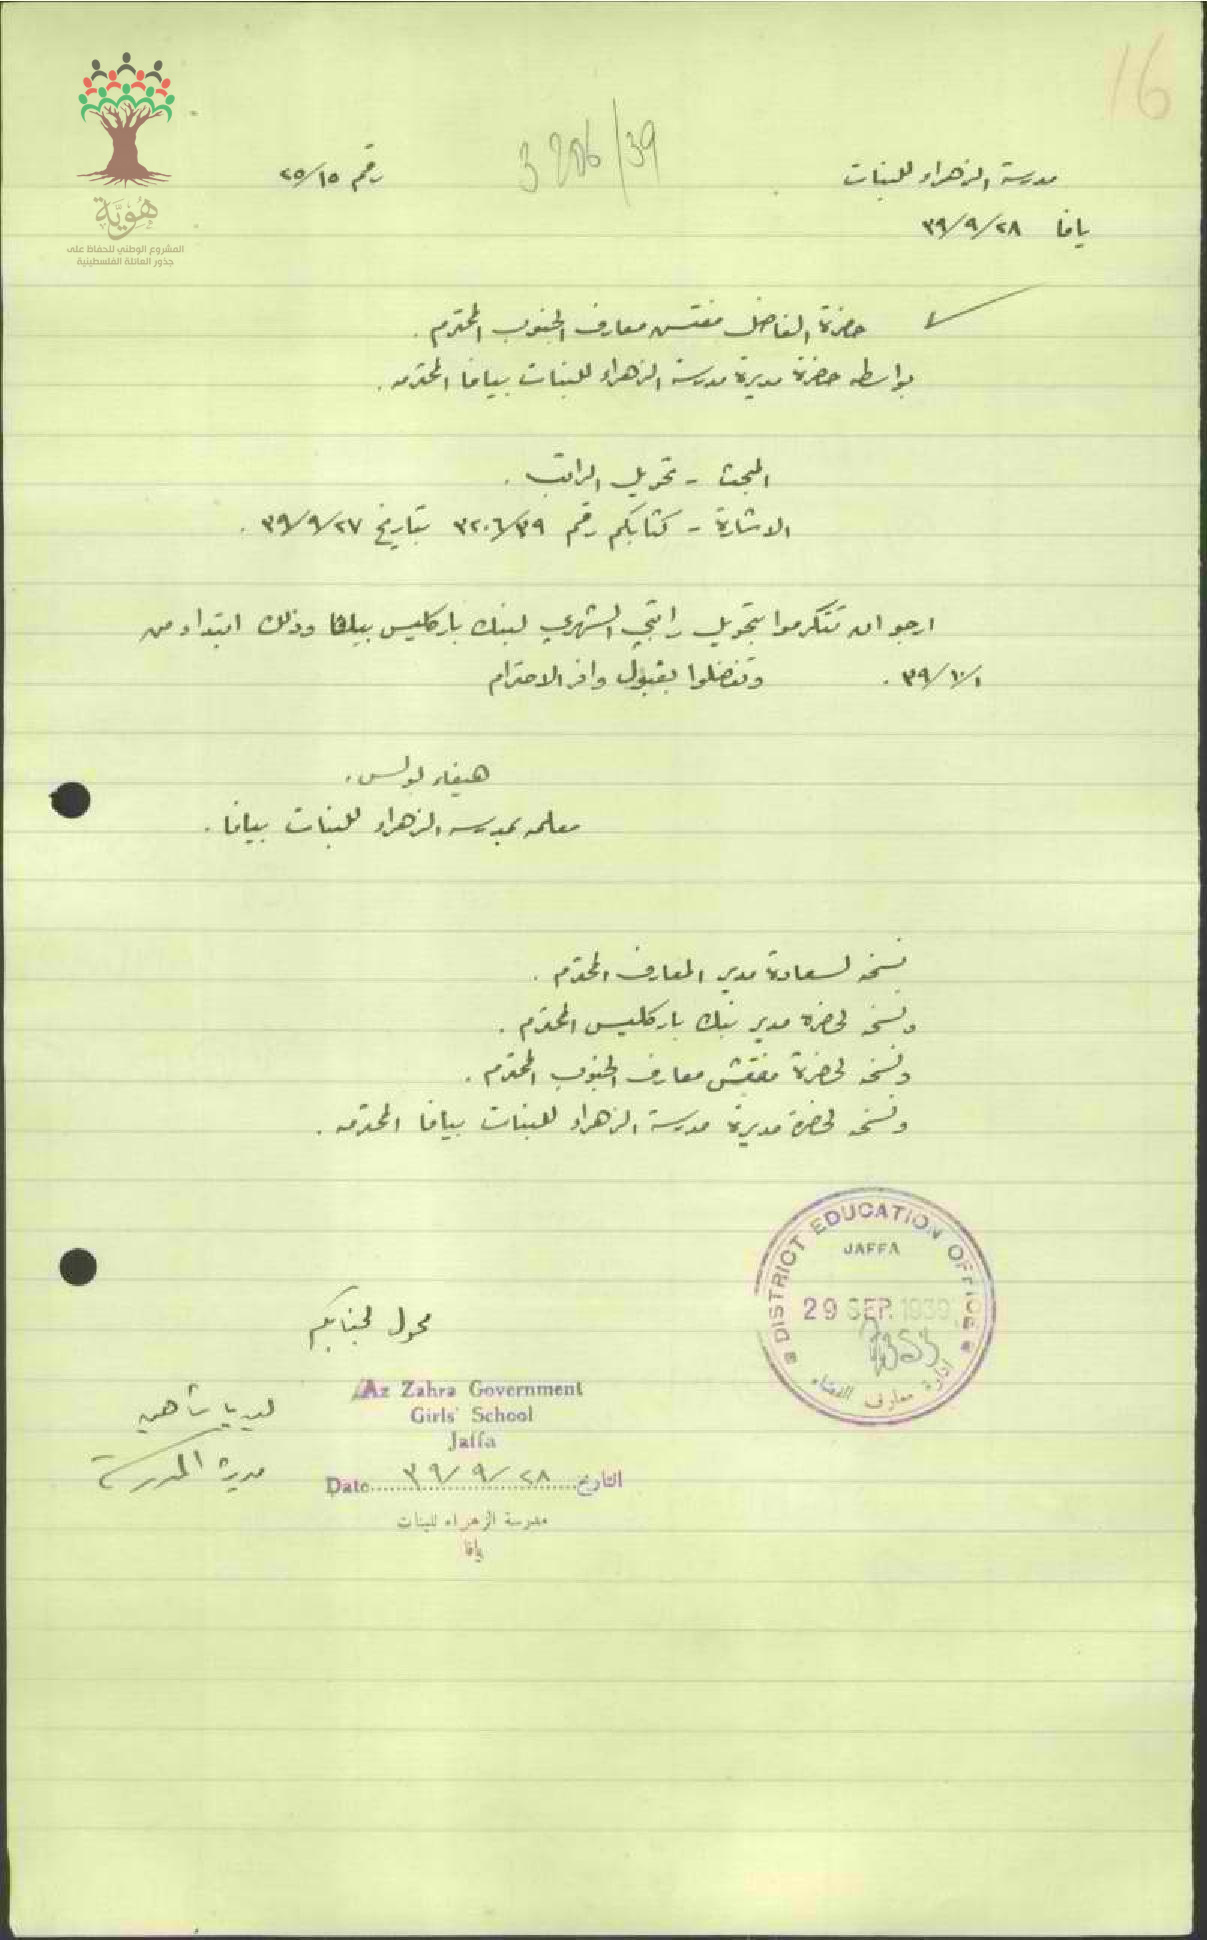 16
هُوِيَّة
المشروع الوطني للحفاظ على
جذور العائلة الفلسطينية
3206/39
مدرسة الزهراء للبنات رقم ٢٥/١٥
يافا ٣٩/٩/٢٨
حضرة الفاضل مفتش معارف الجنوب المحترم .
بواسطه حضرة مديرة مدرسة الزهراء للبنات بيافا المحترمه .
المبحث - تحويل الراتب .
الاشارة - كتابكم رقم ٣٢٠٦/٣٩ بتاريخ ٣٩/٩/٢٧ .
ارجو ان تتكرموا بتحويل راتبي الشهري لبنك باركليس بيافا وذلك ابتداء من
٣٩/١٠/١ . وتفضلوا بقبول وافر الاحترام
هيفاء بولس .
معلمه بمدرسه الزهراء للبنات بيافا .
نسخه لسعادة مدير المعارف المحترم .
ونسخه لحضرة مدير بنك باركليس المحترم .
ونسخه لحضرة مفتش معارف الجنوب المحترم .
ونسخه لحضرة مديرة مدرسة الزهراء للبنات بيافا المحترمه .
DISTRICT EDUCATION OFFICE
JAFFA
29 SEP. 1939
ادارة معارف القضاء
محول لجنابكم
Az Zahra Government
Girls' School
Jaffa
Date ٣٩/٩/٢٨ التاريخ
مدرسة الزهراء للبنات
يافا
ليديا شاهين
مديرة المدرسة